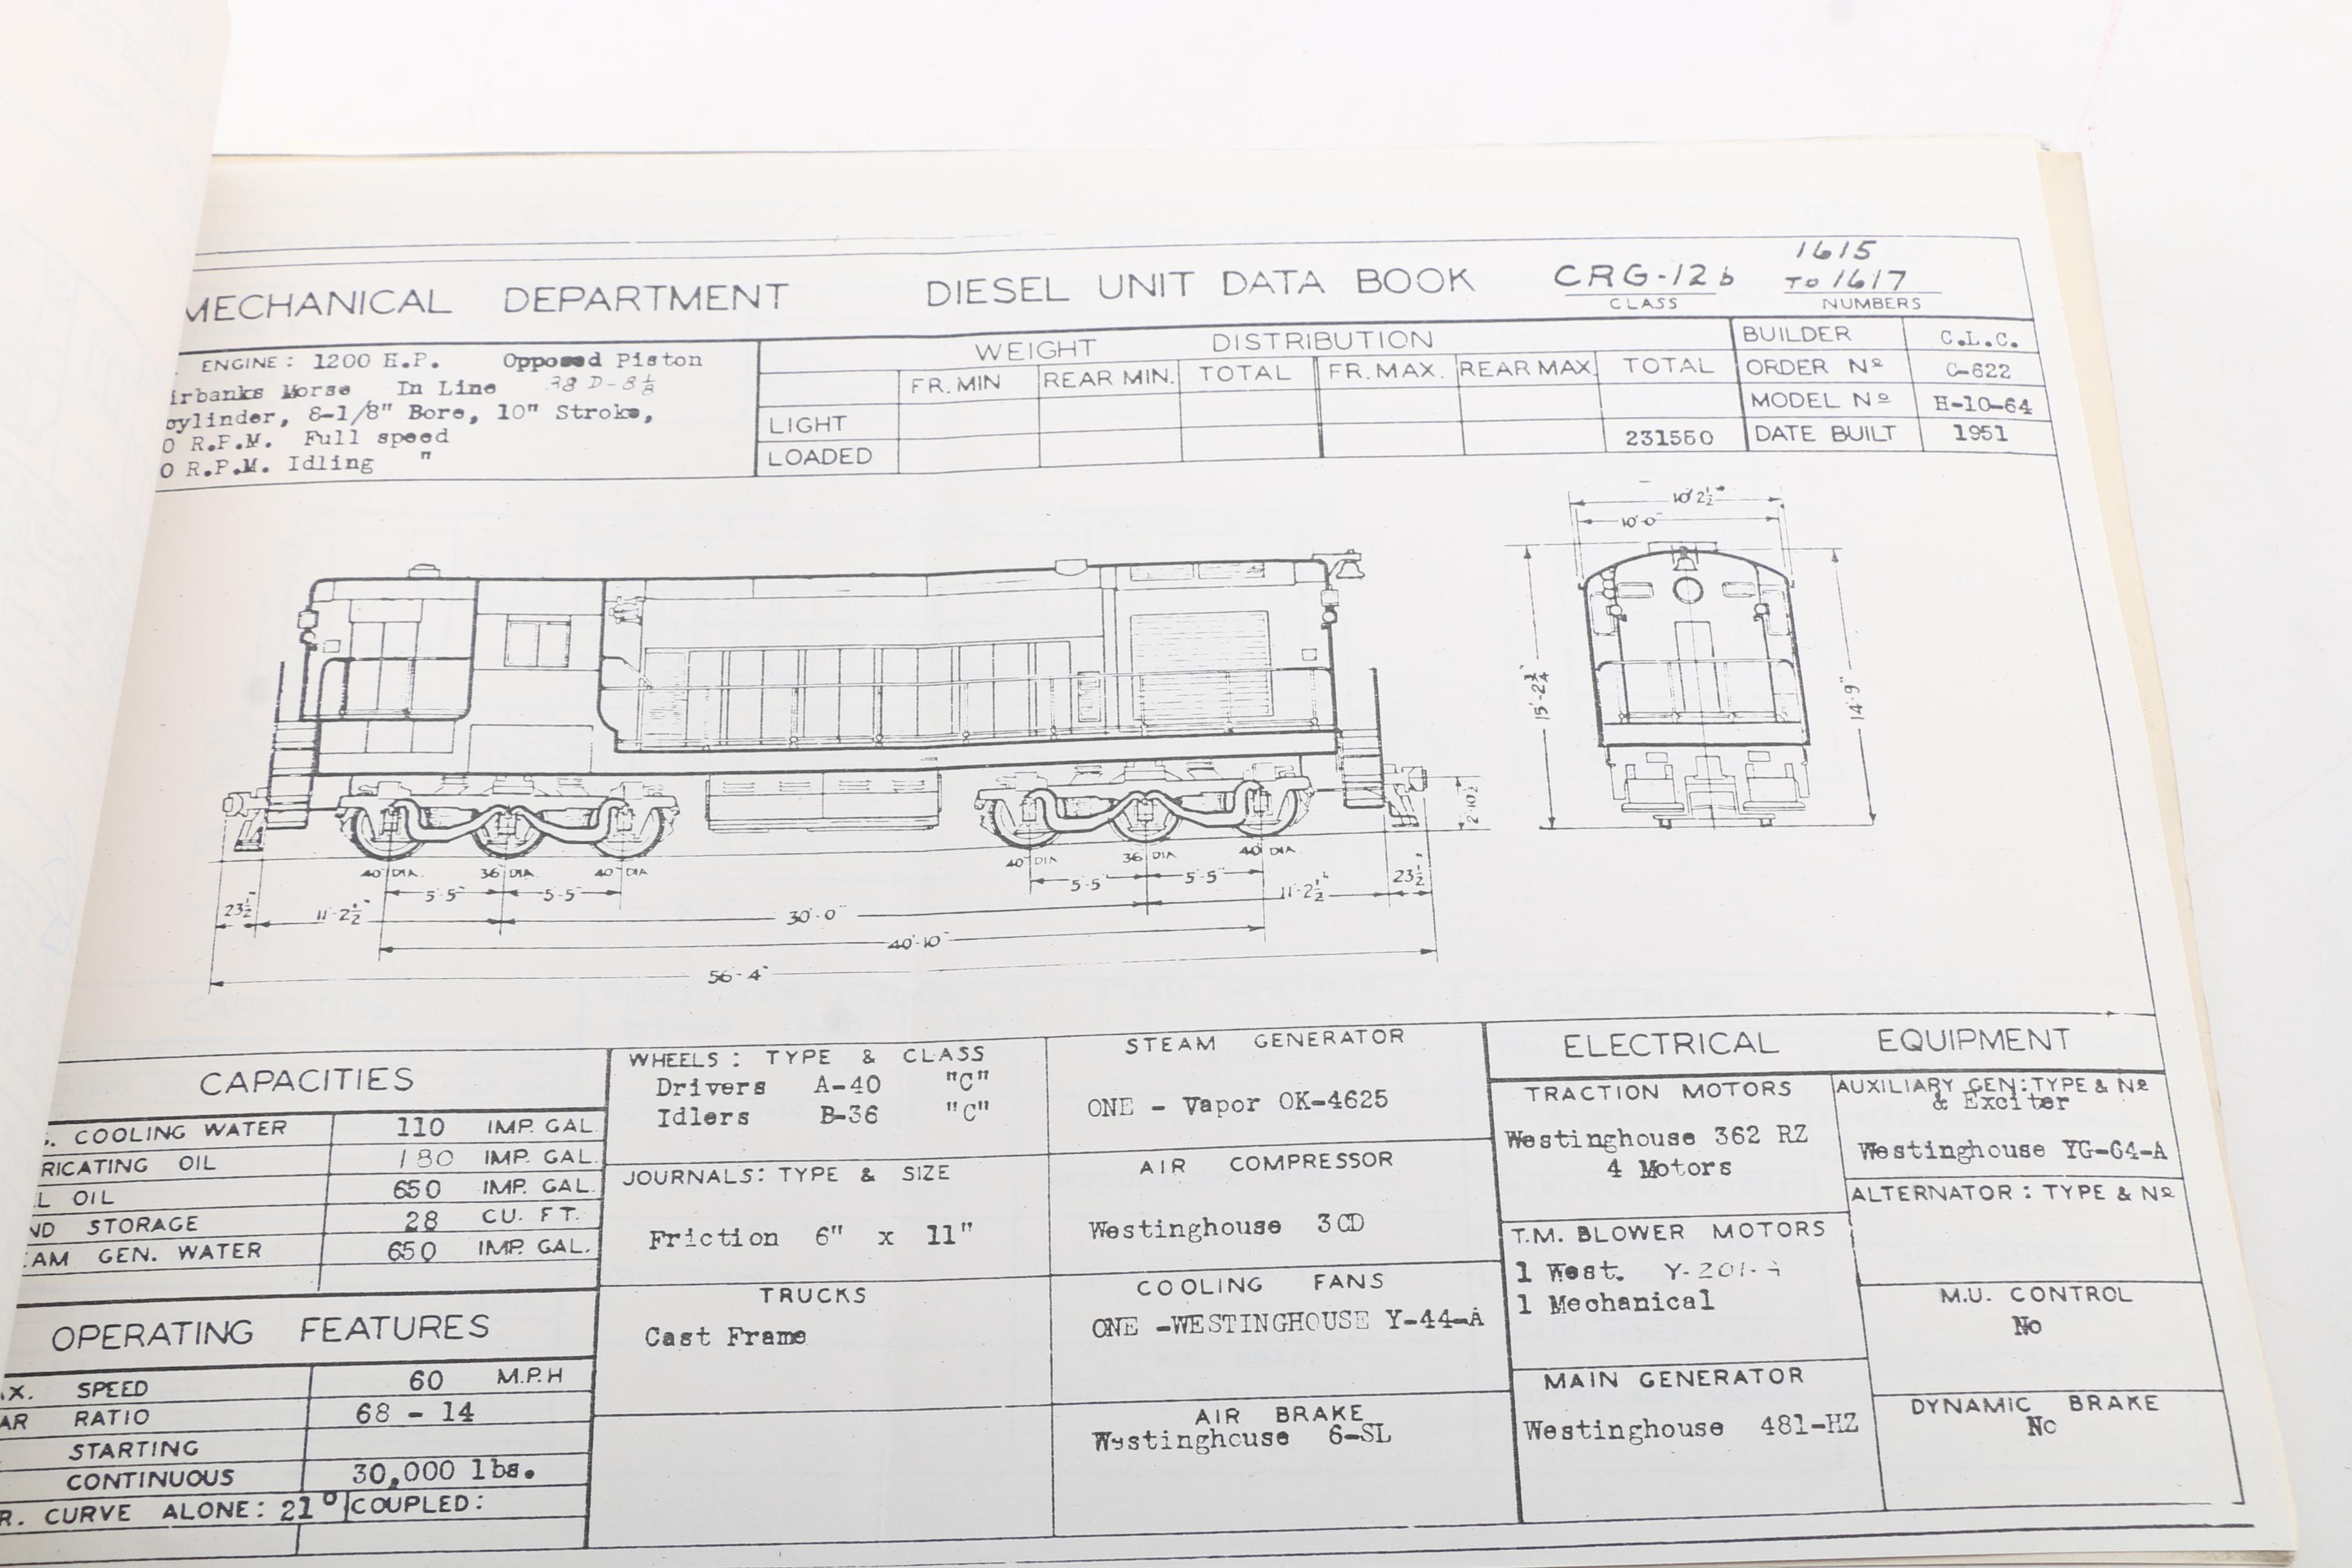 MECHANICAL DEPARTMENT DIESEL UNIT DATA BOOK CRG-12b 1615 TO 1617
CLASS NUMBERS
ENGINE: 1200 H.P. Opposed Piston
irbanks Morse In Line 38 D-8 1/8
cylinder, 8-1/8" Bore, 10" Stroke,
0 R.P.M. Full speed
0 R.P.M. Idling "
WEIGHT DISTRIBUTION
FR. MIN REAR MIN. TOTAL FR. MAX. REAR MAX. TOTAL
LIGHT
LOADED 231560
BUILDER C.L.C.
ORDER Nº C-622
MODEL Nº H-10-64
DATE BUILT 1951
10' 2½"
10'-0"
15'-2¾"
14'-9"
2'-10½"
40" DIA. 36" DIA. 40" DIA
40" DIA 36" DIA 40" DIA.
5'-5" 5'-5" 5'-5" 5'-5"
23½" 11'-2½" 30'-0" 11'-2½" 23½"
40'-10"
56'-4"
CAPACITIES
. COOLING WATER 110 IMP. GAL.
RICATING OIL 180 IMP. GAL.
L OIL 650 IMP. GAL.
ND STORAGE 28 CU. FT.
AM GEN. WATER 650 IMP. GAL.
OPERATING FEATURES
X. SPEED 60 M.P.H
AR RATIO 68 - 14
STARTING
CONTINUOUS 30,000 lbs.
R. CURVE ALONE: 21° COUPLED:
WHEELS: TYPE & CLASS
Drivers A-40 "C"
Idlers B-36 "C"
JOURNALS: TYPE & SIZE
Friction 6" x 11"
TRUCKS
Cast Frame
STEAM GENERATOR
ONE - Vapor OK-4625
AIR COMPRESSOR
Westinghouse 3CD
COOLING FANS
ONE -WESTINGHOUSE Y-44-A
AIR BRAKE
Westinghouse 6-SL
ELECTRICAL EQUIPMENT
TRACTION MOTORS
Westinghouse 362 RZ
4 Motors
T.M. BLOWER MOTORS
1 West. Y-201-A
1 Mechanical
MAIN GENERATOR
Westinghouse 481-HZ
AUXILIARY GEN: TYPE & Nº
& Exciter
Westinghouse YG-64-A
ALTERNATOR: TYPE & Nº
M.U. CONTROL
No
DYNAMIC BRAKE
No